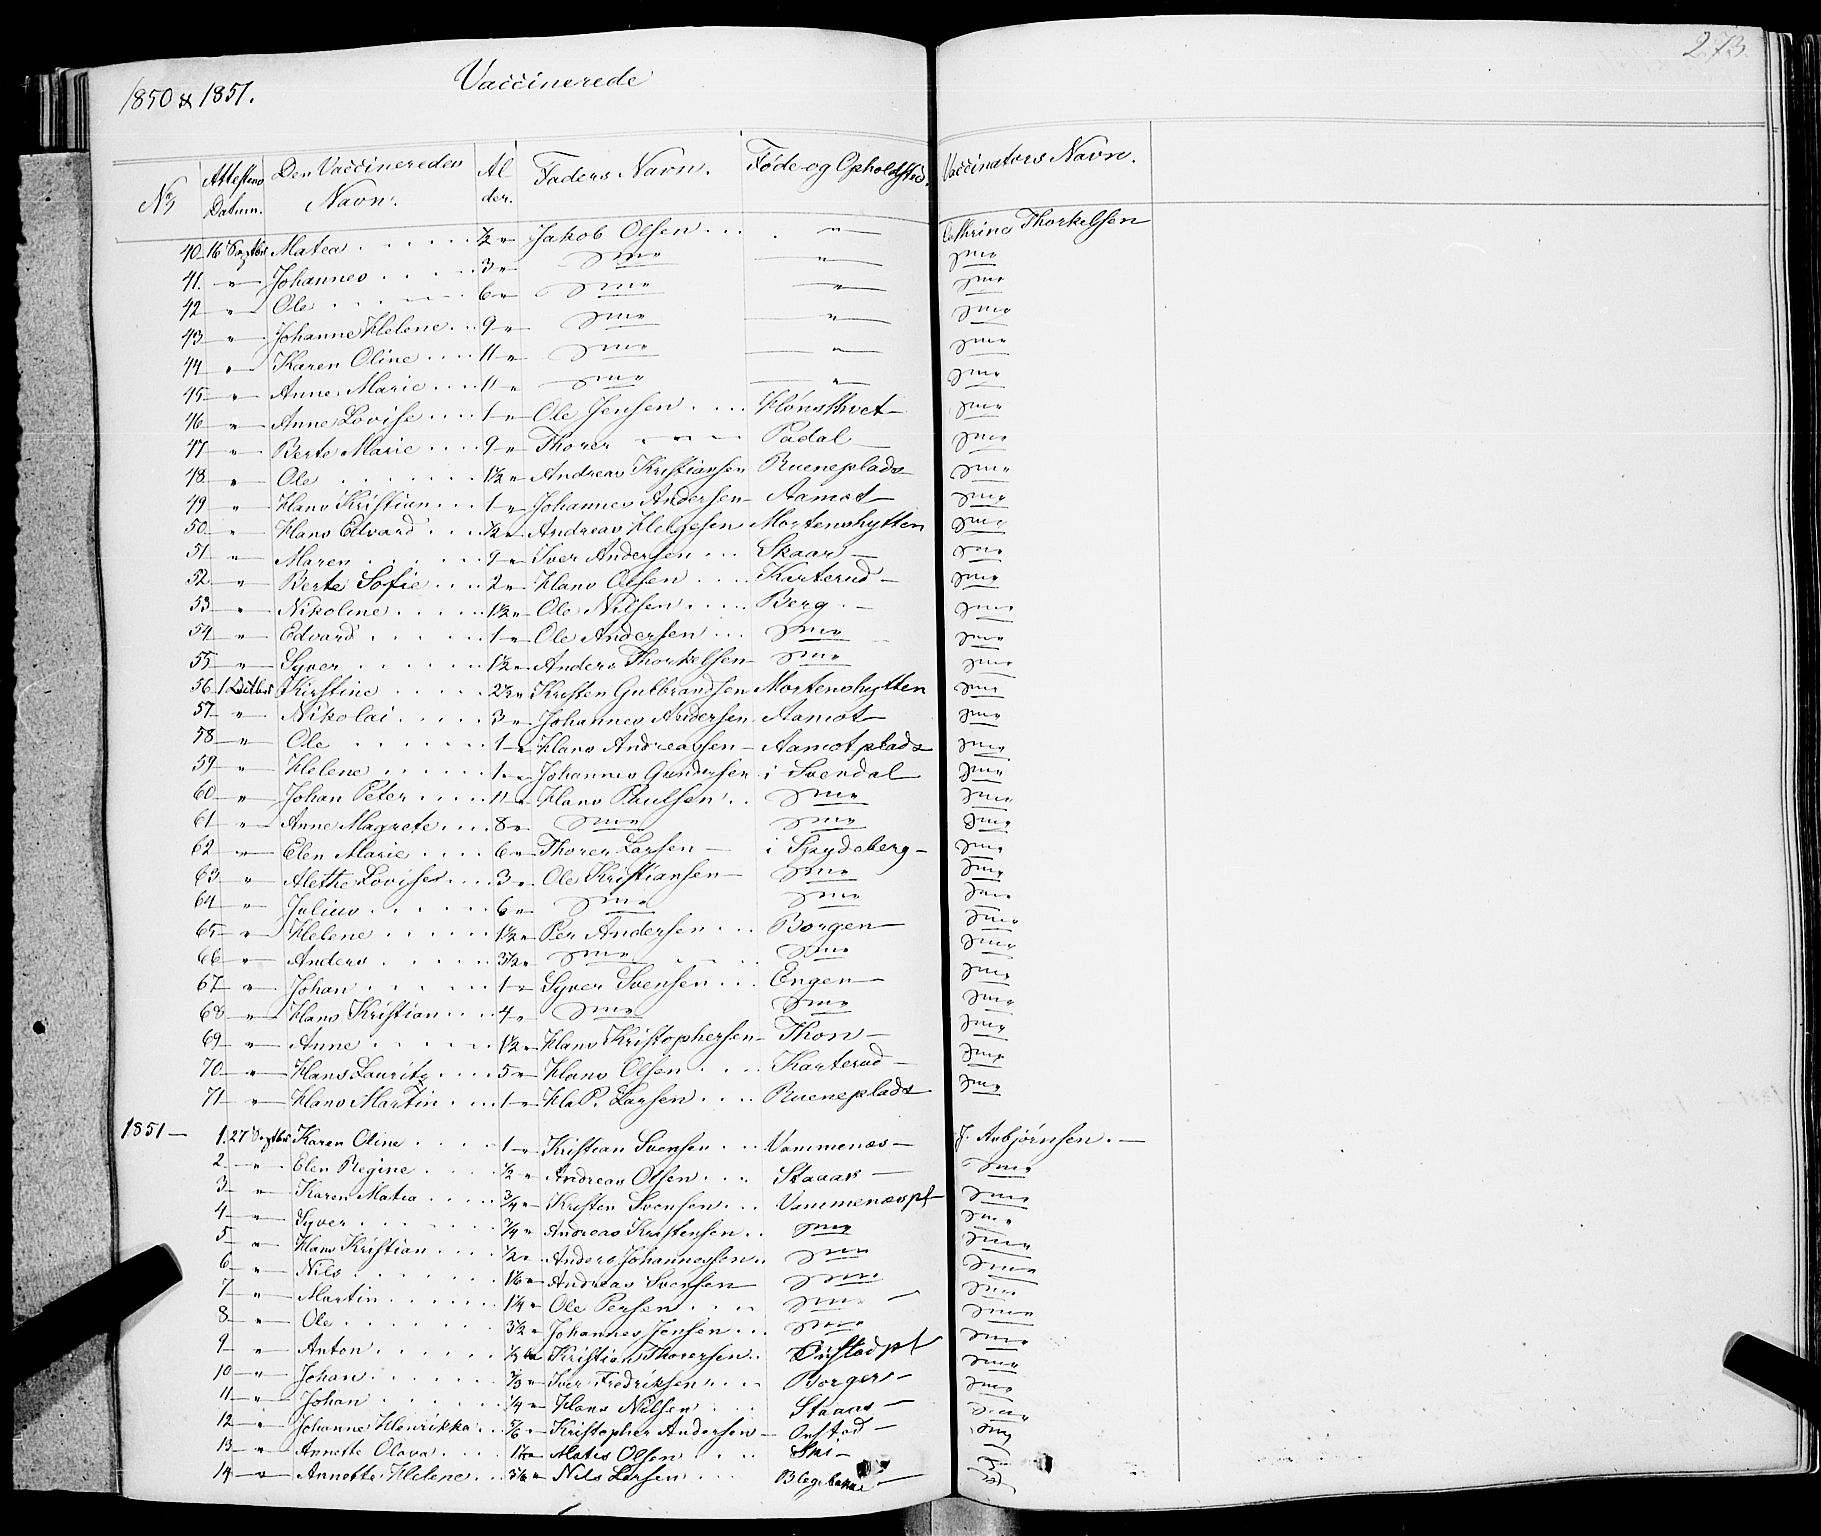 273.
1850 & 1851. Vaccinerede
No Attestens Datum. Den Vaccineredes Navn. Alder. Faders Navn. Føde og Opholdsted. Vaccinators Navn.
40 16 Septbr Matea ½ " Jakob Olsen " Cathrine Thorkelsen
41. " Johannes 3 " Sme " Sme
42 " Ole 6 " Sme " Sme
43 " Johanne Helene 9 " Sme " Sme
44 " Karen Oline 11 " Sme " Sme
45 " Anne Marie 11 " Sme " Sme
46 " Anne Lovise 1 " Ole Jensen Hønsthvet Sme
47 " Berte Marie 9 " Thorer " Padal Sme
48 " Ole 1½ " Andreas Kristiansen Rueneplads Sme
49 " Hans Kristian 1 " Johannes Andersen Aamot Sme
50 " Hans Edvard ½ " Andreas Helgesen Mortenshytten Sme
51 " Maren 9 " Iver Andersen Skaar Sme
52 " Berte Sofie 2 " Hans Olsen Karterud Sme
53 " Nikoline 1½ " Ole Nilsen Berg Sme
54 " Edvard 1 " Ole Andersen Sme Sme
55 " Syver 1½ " Anders Thorkelsen Sme Sme
56 1 Kirstine 2½ " Kristen Gulbrandsen Mortenshytten Sme
57 " Nikolai 3 " Johannes Andersen Aamot Sme
58 " Ole 1 " Hans Andreassen Aamotplads Sme
59 " Helene 1 " Johannes Gundersen i Svendal Sme
60 " Johan Peter 11 " Hans Paulsen Sme Sme
61 " Anne Magrete 8 " Sme Sme Sme
62 " Elen Marie 6 " Thorer Larsen i Spydeberg Sme
63 " Alethe Lovise 3 " Ole Kristiansen Sme Sme
64 " Julius 6 " Sme Sme Sme
65 " Helene 1½ " Per Andersen Borgen Sme
66 " Anders 3½ " Sme Sme Sme
67 " Johan 1 " Syver Svensen Engen Sme
68 " Hans Kristian 4 " Sme Sme Sme
69 " Anne 1½ " Hans Kristophersen Thon Sme
70 " Hans Lauritz 5 " Hans Olsen Karterud Sme
71 " Hans Martin 1 " H. P. Larsen Rueneplads Sme
1851 1. 27 Septbr Karen Oline 1 " Kristian Svensen Vammenæs J. Asbjørnsen.
2 " Elen Regine ½ " Andreas Olsen Staaas Sme
3 " Karen Matea ¾ " Kristen Svensen Vammenæspl Sme
4 " Syver ¾ " Andreas Kristensen Sme Sme
5 " Hans Kristian ½ " Anders Johannessen Sme Sme
6 " Nils " Andreas Svensen Sme Sme
7 " Martin 1¼ " Ole Persen Sme Sme
8 " Ole 3½ " Johannes Jensen Sme Sme
9 " Anton Kristian Thorersen Sme
10 " Johan " Iver Fredriksen Borgen Sme
11 " Johan ¼ " Hans Nilsen Staaas Sme
12 " Johanne Henrikka " Kristopher Andersen Onstad Sme
13 " Annette Olava Matis Olsen Ski
14 " Annette Helene Nils Larsen